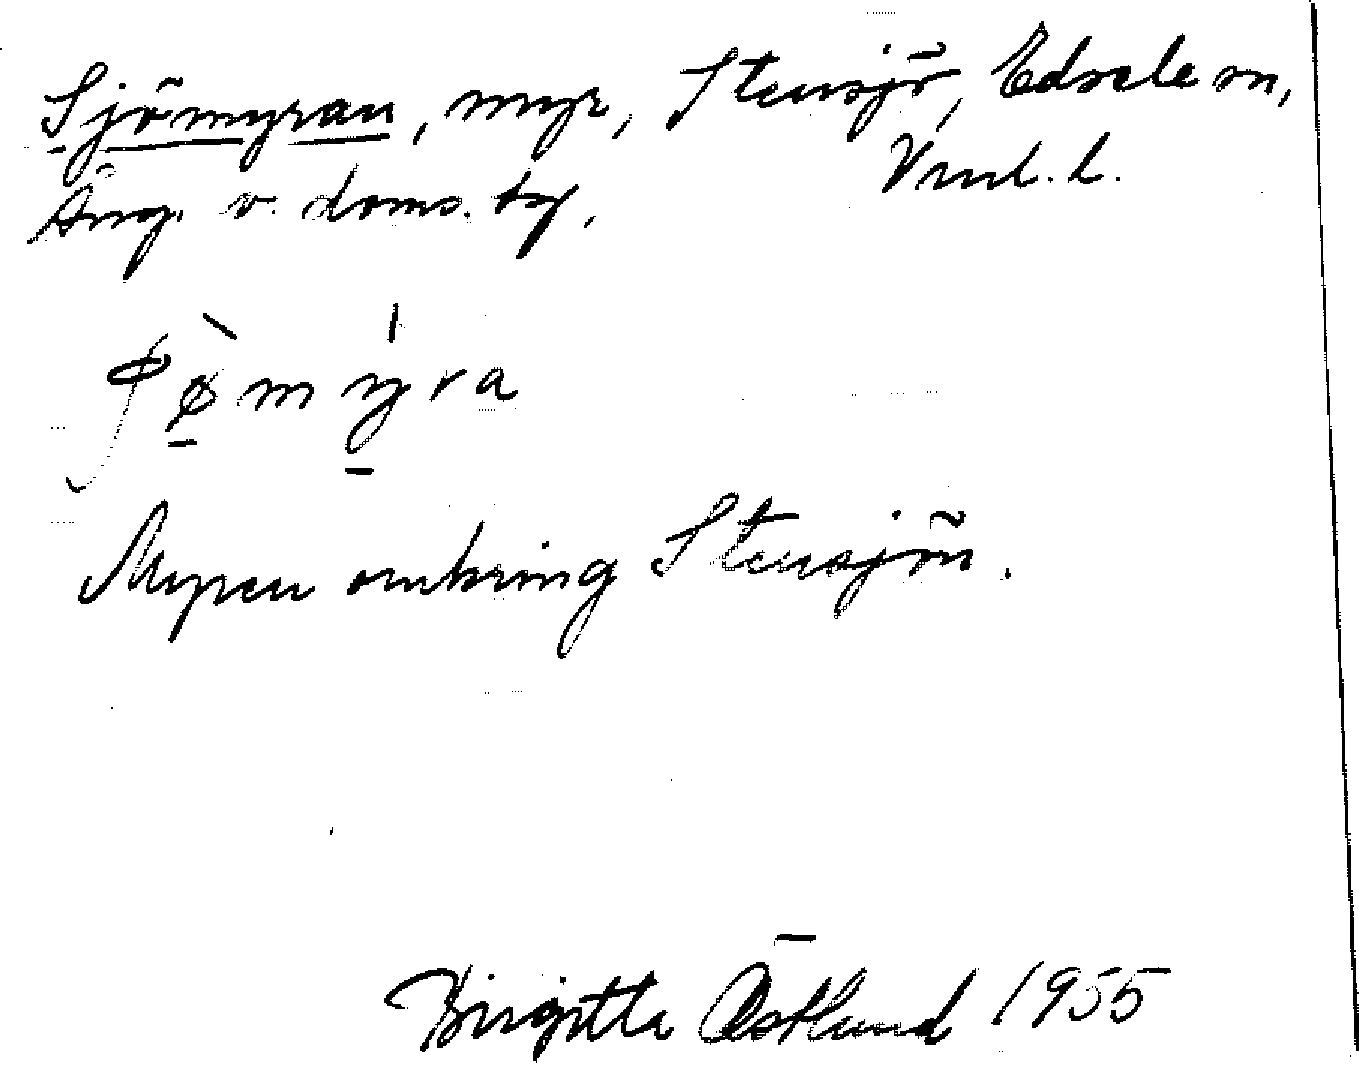 Sjömyran, myr, Stensjö, Edsele sn,
Ång. v. doms. tg. Vnl. l.
Myren omkring Stensjön.
Birgitta Östlund 1955